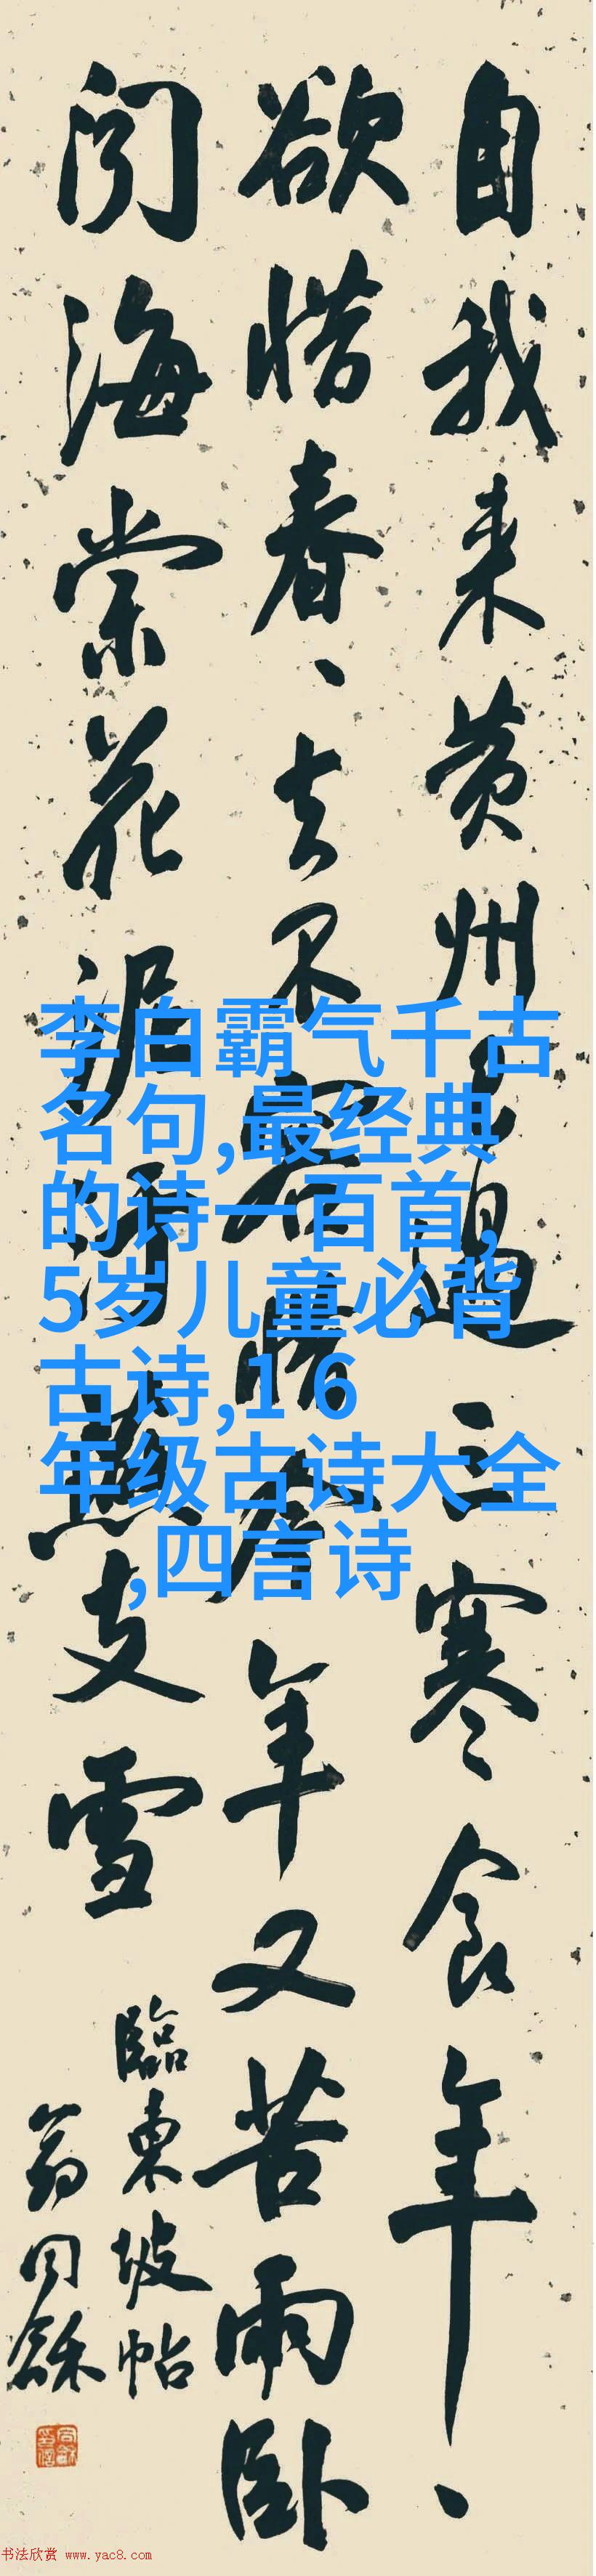 自我来黄州已過三寒食年、
欲惜春、去不容惜今年又苦雨卧
聞海棠花泥汙燕支雪
臨東坡帖
翁同龢
李白霸气千古
名句,最经典
的诗一百首,
5岁儿童必背
古诗,1 6
年级古诗大全
,四言诗
书法欣赏 www.yac8.com